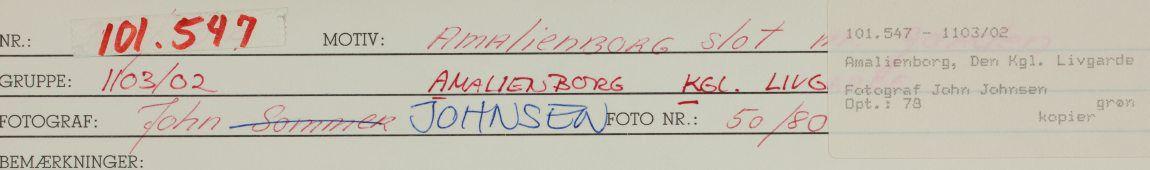 NR.: 101.547 MOTIV: AMAlienBORG slot
GRUPPE: 1103/02 AMALIENBORG KGL. LIVG
FOTOGRAF: John Sommer JOHNSEN FOTO NR.: 50/80
BEMÆRKNINGER:
101.547 - 1103/02
Amalienborg, Den Kgl. Livgarde
Fotograf John Johnsen
Opt.: 78 grøn
kopier